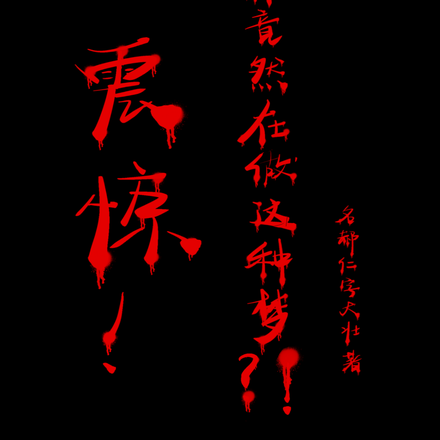 震惊！
竟然在做这种梦？！
名郝仁字大壮著